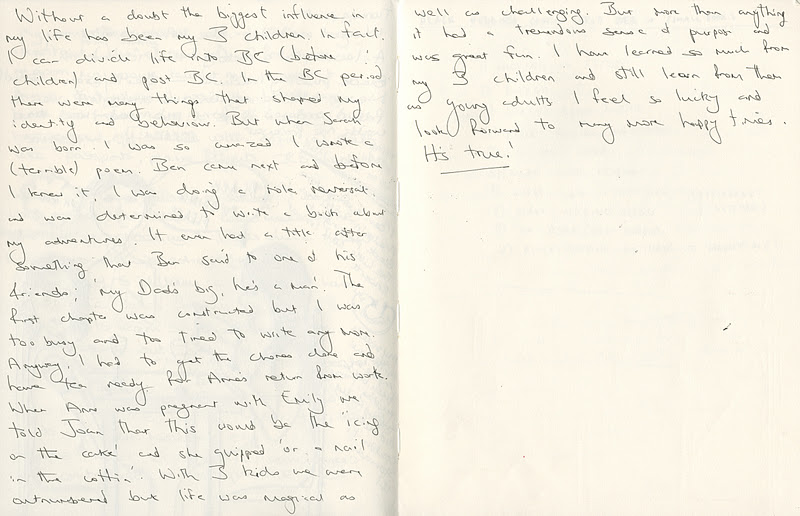 Without a doubt the biggest influence in
my life has been my 3 children. In fact
I can divide life into BC (before
children) and post BC. In the BC period
there were many things that shaped my
identity and behaviour. But when Sarah
was born I was so amazed I wrote a
(terrible) poem. Ben came next and before
I knew it, I was doing a role reversal
and was determined to write a book about
my adventures. It even had a title after
something that Ben said to one of his
friends; 'my Dad's big, he's a man'. The
first chapter was constructed but I was
too busy and too tired to write any more.
Anyway, I had to get the chores done and
have tea ready for Anne's return from work.
When Anne was pregnant with Emily we
told Joan that this would be the 'icing
on the cake' and she quipped 'or a nail
in the coffin'. With 3 kids we were
outnumbered but life was magical as
well as challenging. But more than anything
it had a tremendous sense of purpose and
was great fun. I have learned so much from
my 3 children and still learn from them
as young adults I feel so lucky and
look forward to many more happy times.
It's true!